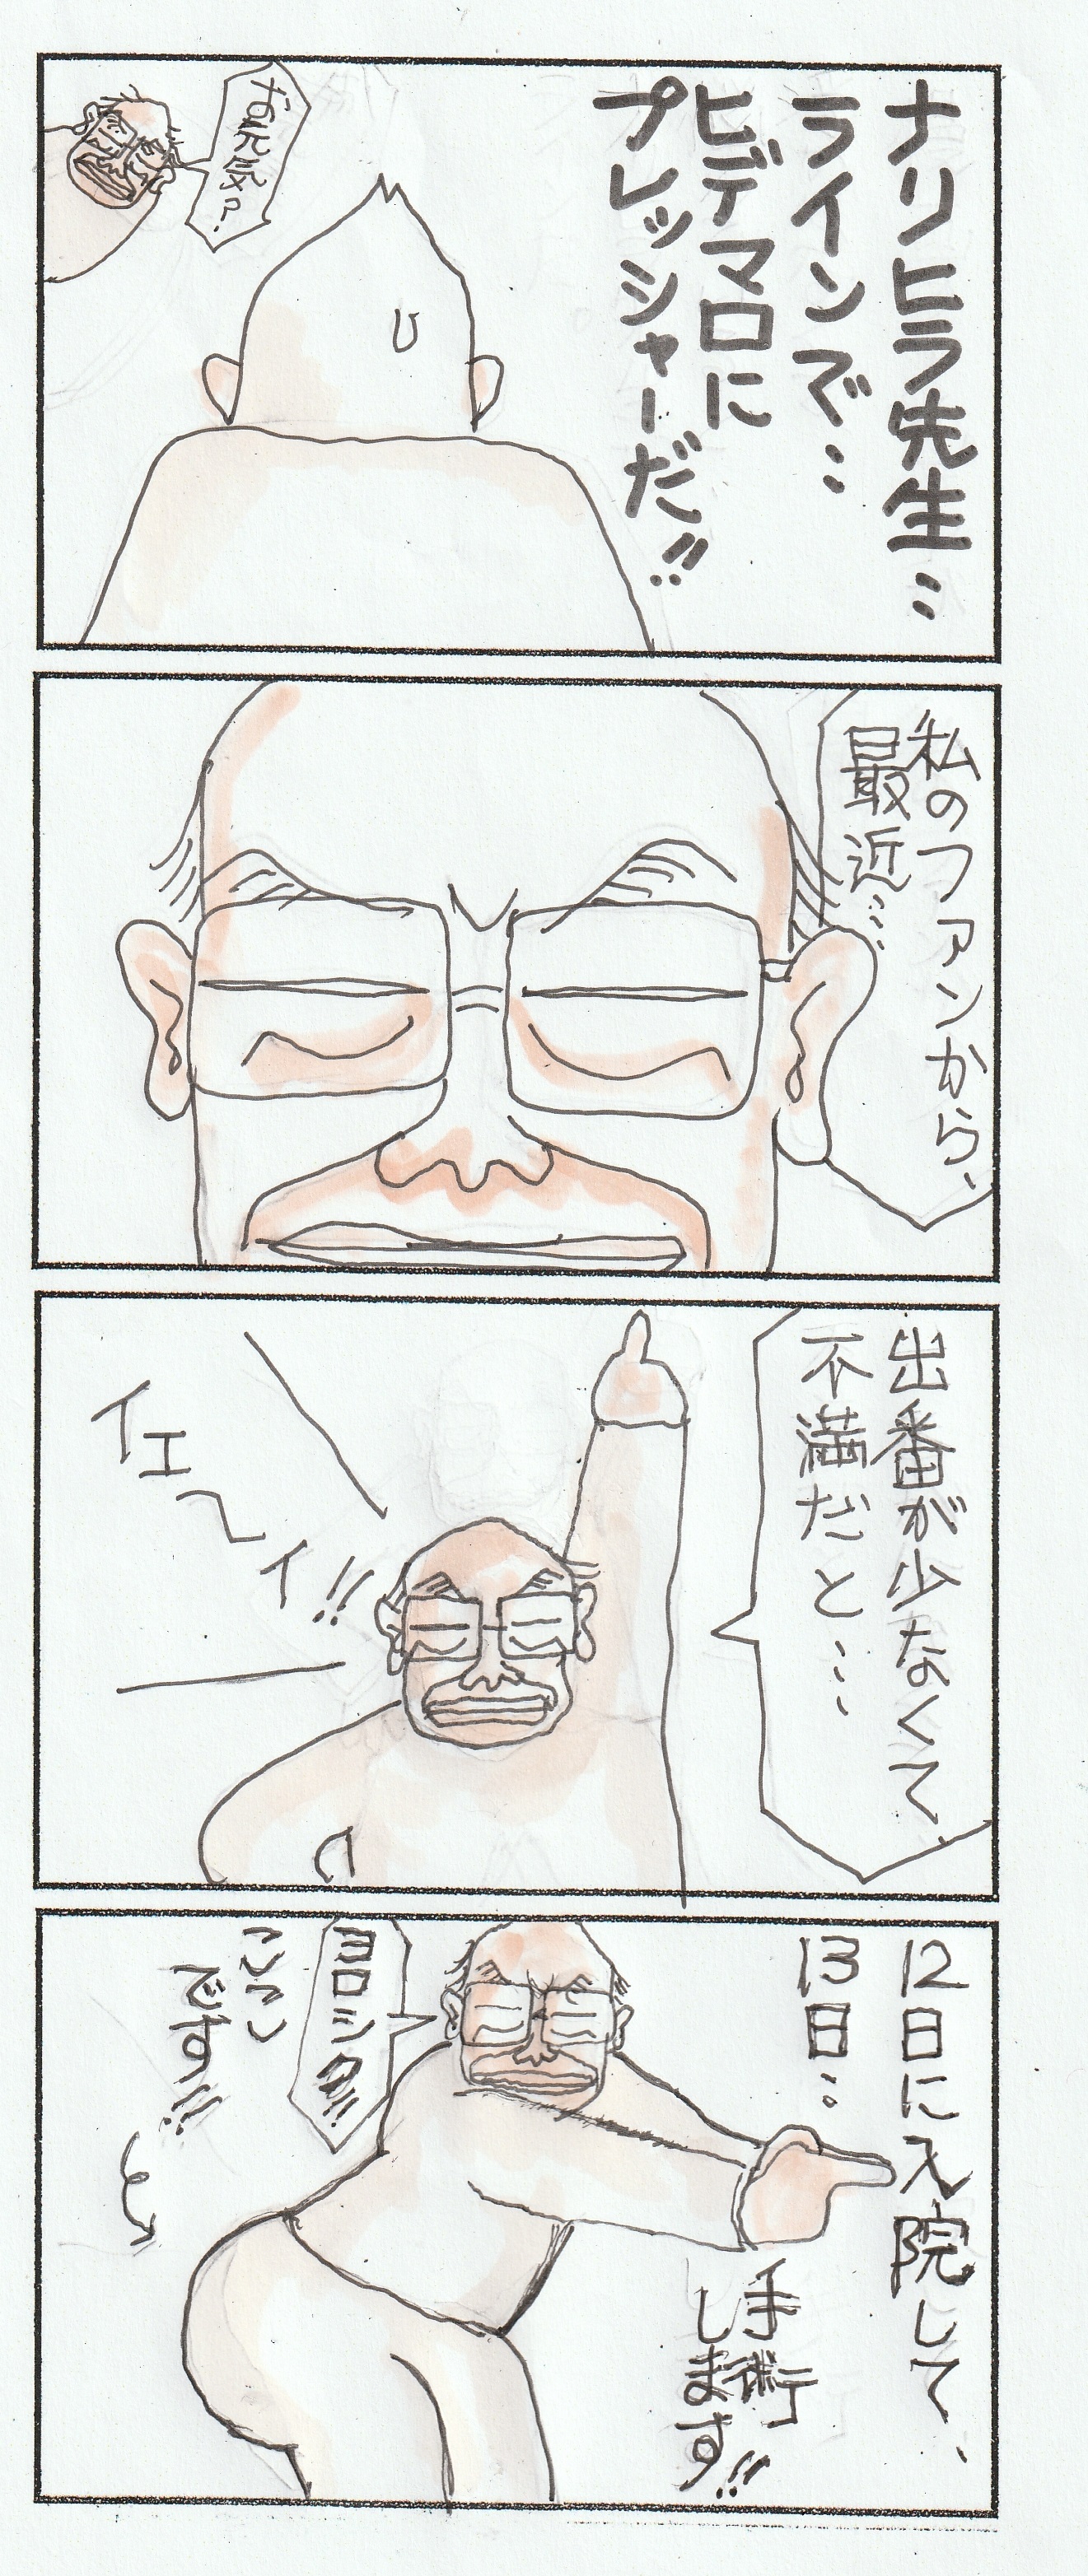 ナリヒラ先生‥
ラインで…
ヒデマロに
プレッシャーだ!!
私のファンから、
最近…
出番が少なくて、
不満だと…
イエ〜イ!!
12日に入院して、
13日…
手術
します!!
ヨロシク!!